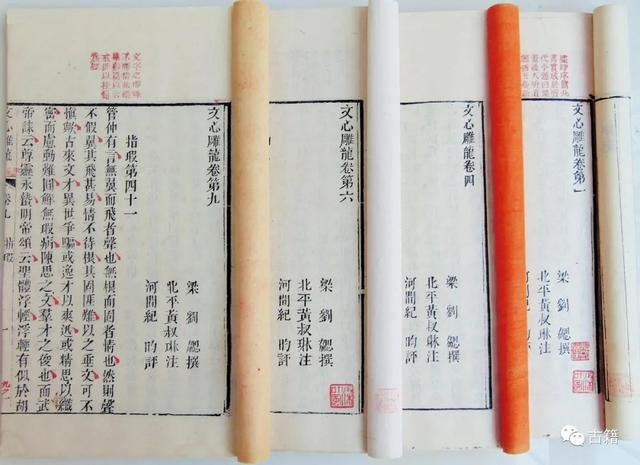 文心雕龍卷第一
梁 劉勰撰
北平黃叔琳注
文心雕龍卷四
梁 劉勰撰
北平黃叔琳注
河間紀昀評
文心雕龍卷第六
梁 劉勰撰
北平黃叔琳注
河間紀昀評
文心雕龍卷第九
梁 劉勰撰
北平黃叔琳注
河間紀昀評
指瑕第四十一
管仲有言無翼而飛者聲也無根而固者情也然則聲
不假翼其飛甚易情不待根其固匪難以之垂文可不
愼歟古來文才異世爭驅或逸才以爽迅或精思以纖
密而慮動難圓鮮無瑕病陳思之文羣才之俊也而武
帝誄云尊靈永蟄明帝頌云聖體浮輕浮輕有似於胡
文心雕龍 卷九 指瑕 一
古籍